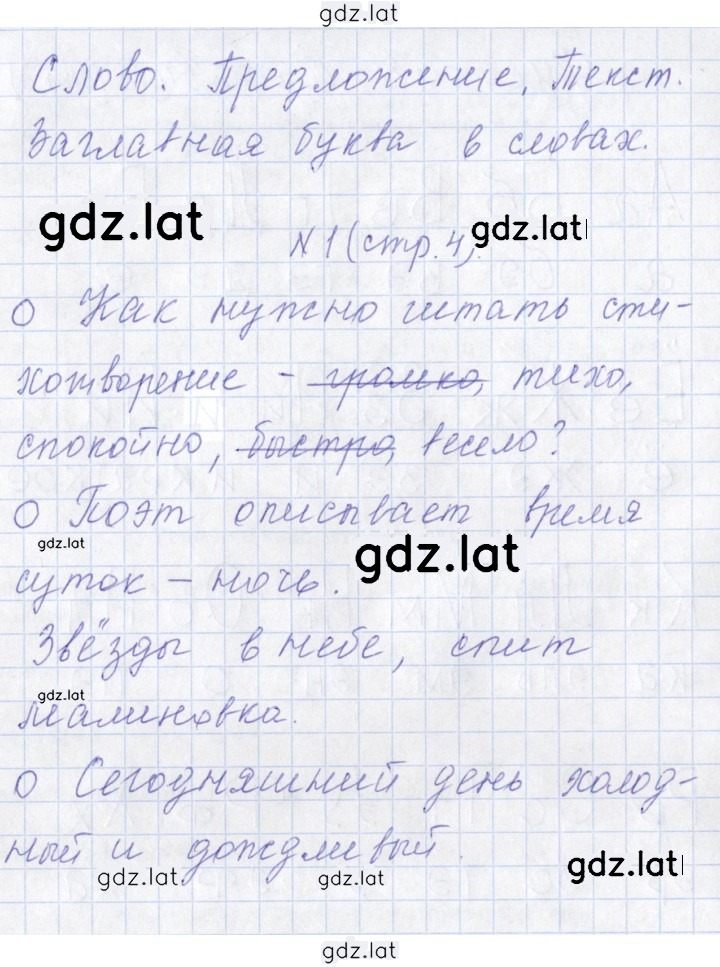 gdz.lat
Слово. Предложение, Текст.
Заглавная буква в словах.
gdz.lat
№1 (стр.4).
gdz.lat
О Как нужно читать сти-
хотворение - громко, тихо,
спокойно, быстро, весело?
О Поэт описывает время
gdz.lat
gdz.lat
суток – ночь.
Звёзды в небе, спит
gdz.lat
малиновка.
О Сегодняшний день холод-
ный и дождливый.
gdz.lat
gdz.lat
gdz.lat
gdz.lat